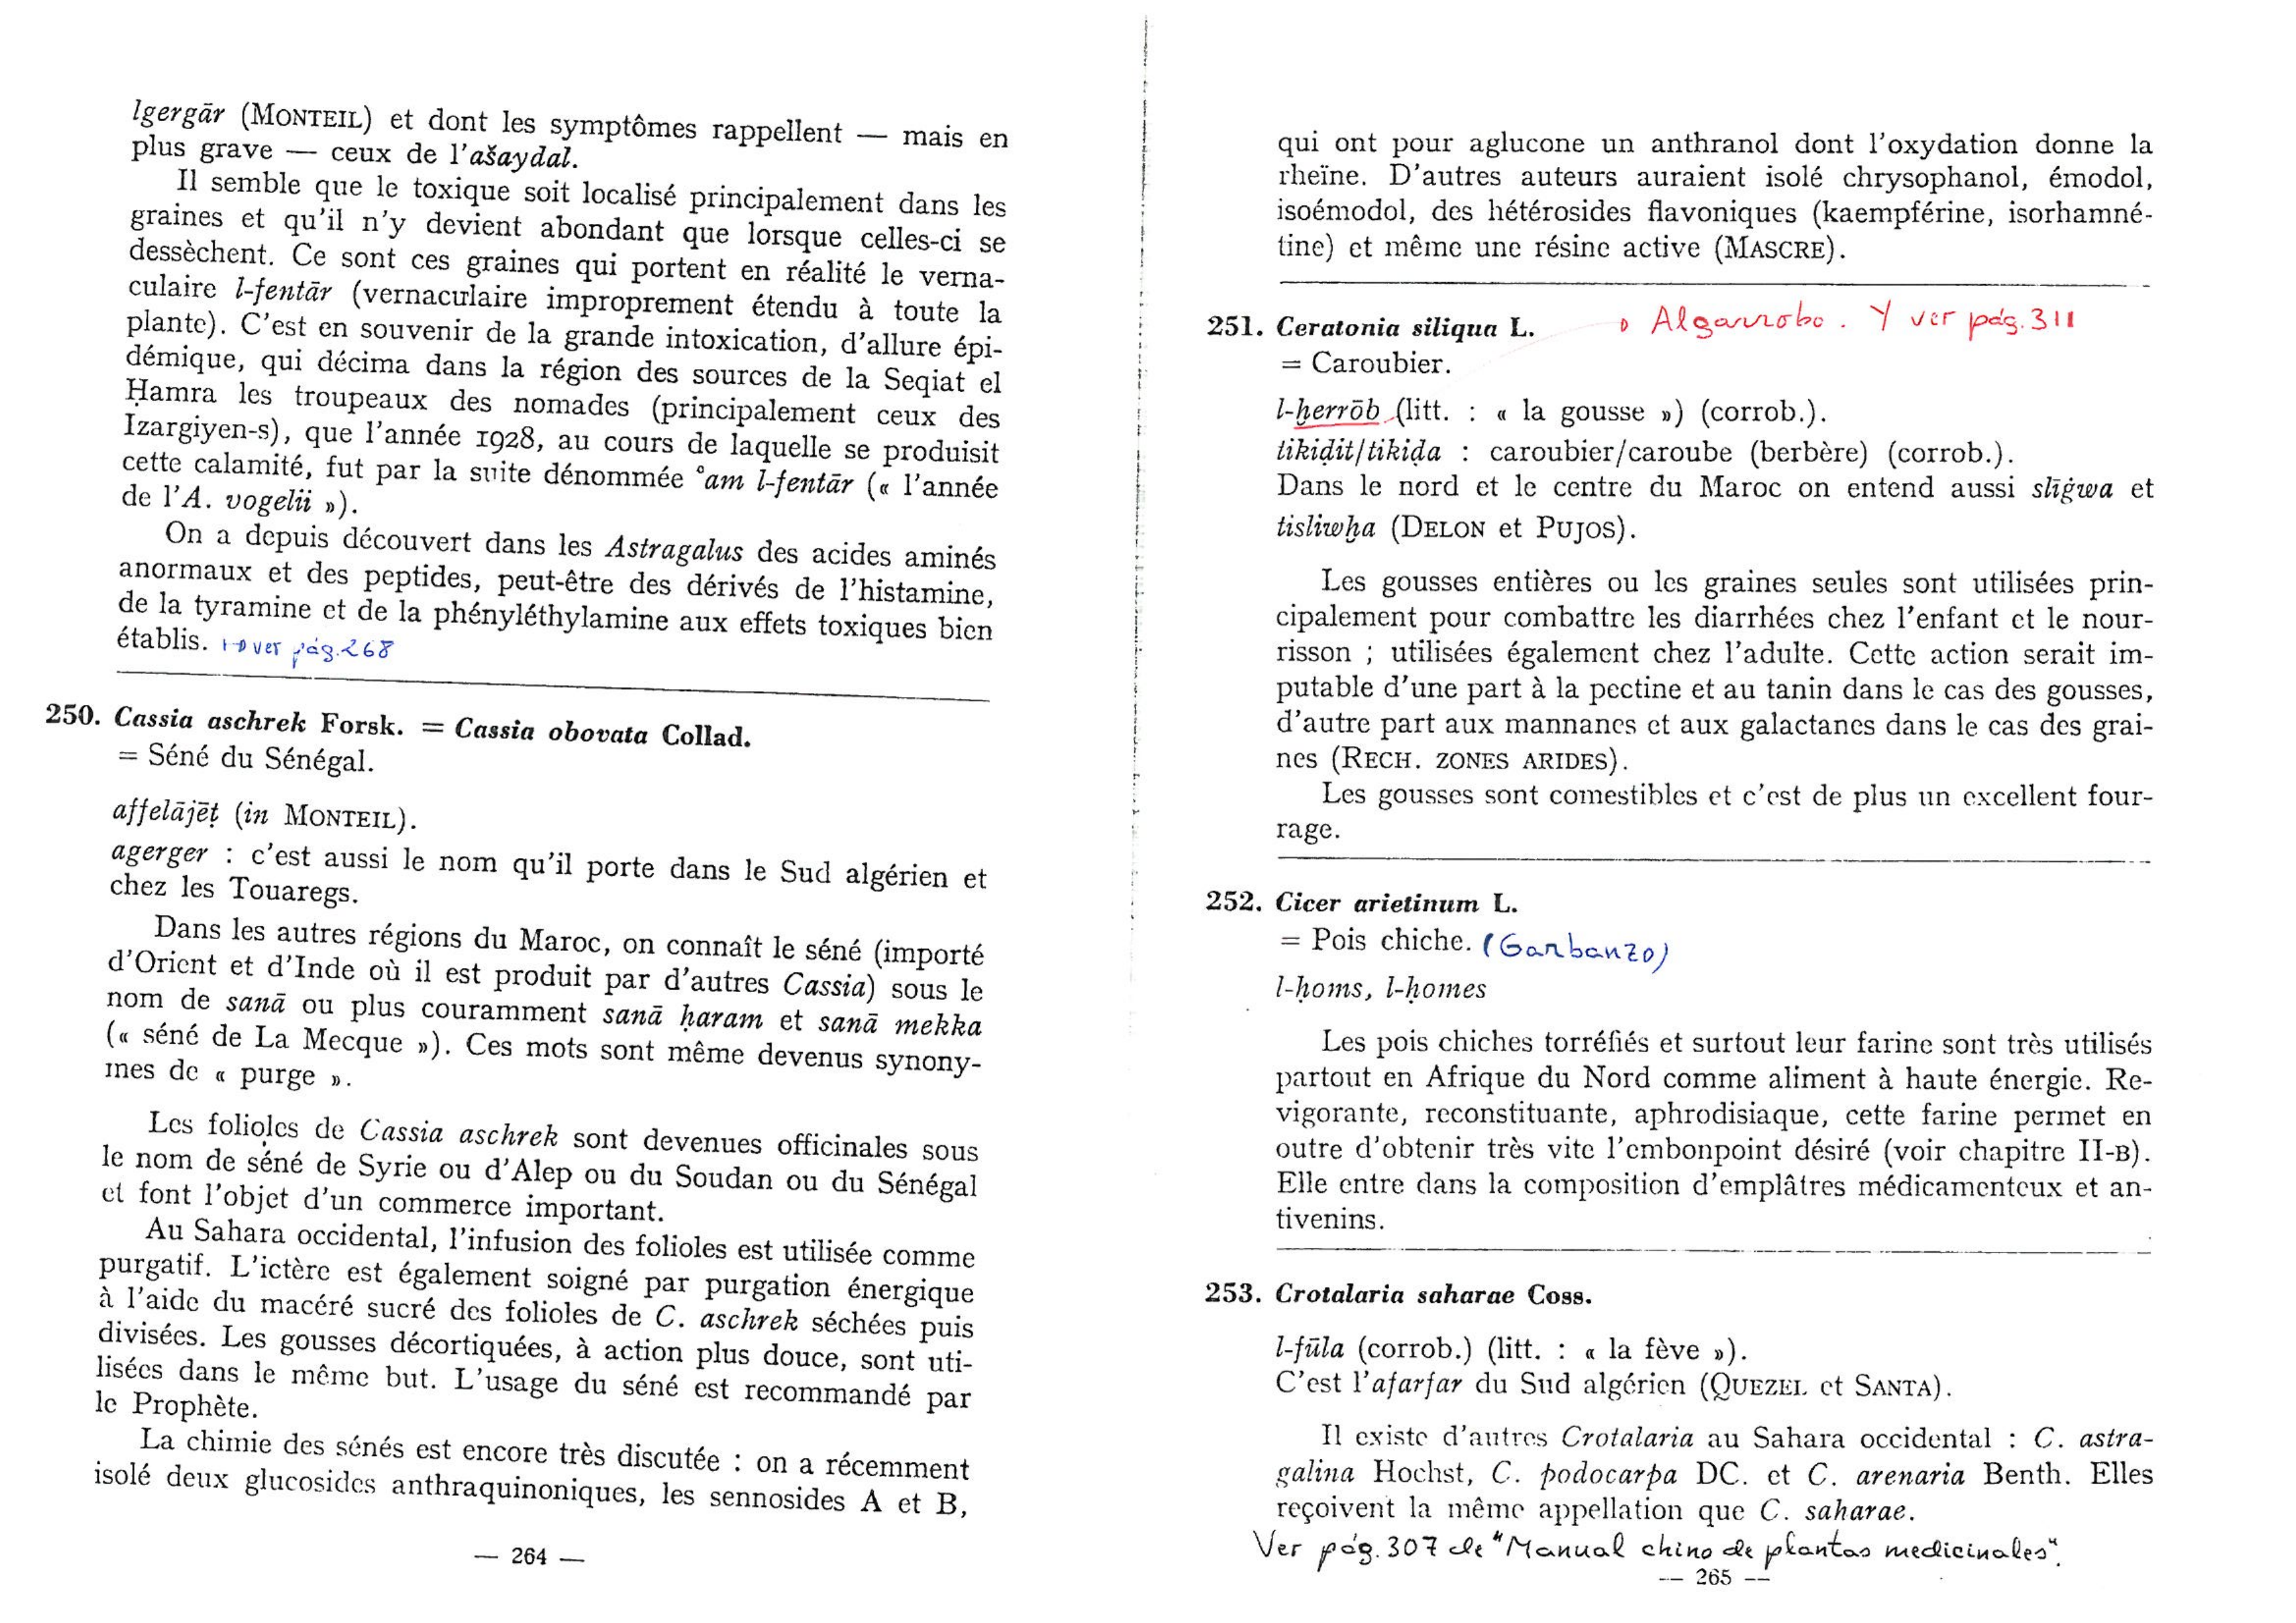 lgergār (MONTEIL) et dont les symptômes rappellent — mais en
plus grave — ceux de l'ašaydal.
Il semble que le toxique soit localisé principalement dans les
graines et qu'il n'y devient abondant que lorsque celles-ci se
dessèchent. Ce sont ces graines qui portent en réalité le verna-
culaire l-fentār (vernaculaire improprement étendu à toute la
plante). C'est en souvenir de la grande intoxication, d'allure épi-
démique, qui décima dans la région des sources de la Seqiat el
Ḥamra les troupeaux des nomades (principalement ceux des
Izargiyen-s), que l'année 1928, au cours de laquelle se produisit
cette calamité, fut par la suite dénommée °am l-fentār (« l'année
de l'A. vogelii »).
On a depuis découvert dans les Astragalus des acides aminés
anormaux et des peptides, peut-être des dérivés de l'histamine,
de la tyramine et de la phényléthylamine aux effets toxiques bien
établis. ver pág.268
250. Cassia aschrek Forsk. = Cassia obovata Collad.
= Séné du Sénégal.
affelājēṭ (in MONTEIL).
agerger : c'est aussi le nom qu'il porte dans le Sud algérien et
chez les Touaregs.
Dans les autres régions du Maroc, on connaît le séné (importé
d'Orient et d'Inde où il est produit par d'autres Cassia) sous le
nom de sanā ou plus couramment sanā ḥaram et sanā mekka
(« séné de La Mecque »). Ces mots sont même devenus synony-
mes de « purge ».
Les folioles de Cassia aschrek sont devenues officinales sous
le nom de séné de Syrie ou d'Alep ou du Soudan ou du Sénégal
et font l'objet d'un commerce important.
Au Sahara occidental, l'infusion des folioles est utilisée comme
purgatif. L'ictère est également soigné par purgation énergique
à l'aide du macéré sucré des folioles de C. aschrek séchées puis
divisées. Les gousses décortiquées, à action plus douce, sont uti-
lisées dans le même but. L'usage du séné est recommandé par
le Prophète.
La chimie des sénés est encore très discutée : on a récemment
isolé deux glucosides anthraquinoniques, les sennosides A et B,
— 264 —
qui ont pour aglucone un anthranol dont l'oxydation donne la
rheïne. D'autres auteurs auraient isolé chrysophanol, émodol,
isoémodol, des hétérosides flavoniques (kaempférine, isorhamné-
tine) et même une résine active (MASCRE).
251. Ceratonia siliqua L. Algarrobo. Y ver pág.311
= Caroubier.
l-ḫerrōb (litt. : « la gousse ») (corrob.).
tikiḍit/tikiḍa : caroubier/caroube (berbère) (corrob.).
Dans le nord et le centre du Maroc on entend aussi slīġwa et
tisliwḫa (DELON et PUJOS).
Les gousses entières ou les graines seules sont utilisées prin-
cipalement pour combattre les diarrhées chez l'enfant et le nour-
risson ; utilisées également chez l'adulte. Cette action serait im-
putable d'une part à la pectine et au tanin dans le cas des gousses,
d'autre part aux mannanes et aux galactanes dans le cas des grai-
nes (RECH. ZONES ARIDES).
Les gousses sont comestibles et c'est de plus un excellent four-
rage.
252. Cicer arietinum L.
= Pois chiche. (Garbanzo)
l-ḥoms, l-ḥomes
Les pois chiches torréfiés et surtout leur farine sont très utilisés
partout en Afrique du Nord comme aliment à haute énergie. Re-
vigorante, reconstituante, aphrodisiaque, cette farine permet en
outre d'obtenir très vite l'embonpoint désiré (voir chapitre II-B).
Elle entre dans la composition d'emplâtres médicamenteux et an-
tivenins.
253. Crotalaria saharae Coss.
l-fūla (corrob.) (litt. : « la fève »).
C'est l'afarfar du Sud algérien (QUEZEL et SANTA).
Il existe d'autres Crotalaria au Sahara occidental : C. astra-
galina Hochst, C. podocarpa DC. et C. arenaria Benth. Elles
reçoivent la même appellation que C. saharae.
Ver pág.307 de "Manual chino de plantas medicinales".
— 265 —